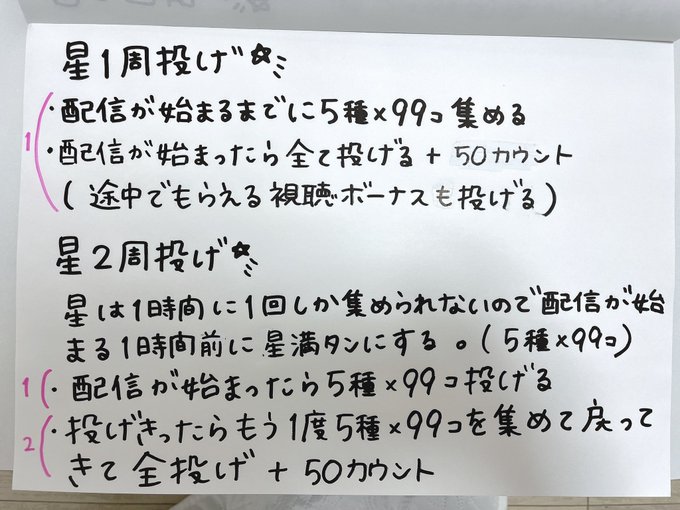 星1周投げ☆ミ
1
・配信が始まるまでに5種×99コ集める
・配信が始まったら全て投げる + 50カウント
(途中でもらえる視聴ボーナスも投げる)
星2周投げ☆ミ
星は1時間に1回しか集められないので配信が始
まる1時間前に星満タンにする。(5種×99コ)
1 ・配信が始まったら5種×99コ投げる
2 ・投げきったらもう1度5種×99コを集めて戻って
きて全投げ + 50カウント